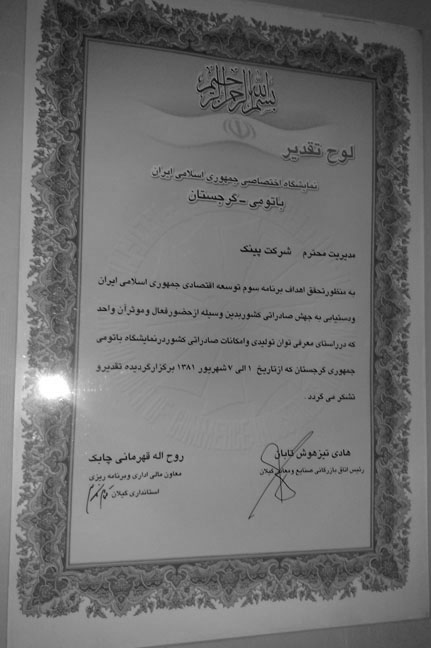 بسم الله الرحمن الرحیم
لوح تقدیر
نمایشگاه اختصاصی جمهوری اسلامی ایران
باتومی - گرجستان
مدیریت محترم شرکت پینک
به منظور تحقق اهداف برنامه سوم توسعه اقتصادی جمهوری اسلامی ایران
ودستیابی به جهش صادراتی کشوربدین وسیله ازحضورفعال و موثرآن واحد
که درراستای معرفی توان تولیدی وامکانات صادراتی کشوردرنمایشگاه باتومی
جمهوری گرجستان که ازتاریخ ۱ الی ۷ شهریور ۱۳۸۱ برگزارگردیده تقدیرو
تشکر می گردد .
هادی تیزهوش تابان
رئیس اتاق بازرگانی صنایع و معادن گیلان
روح اله قهرمانی چابک
معاون مالی اداری وبرنامه ریزی
استانداری گیلان